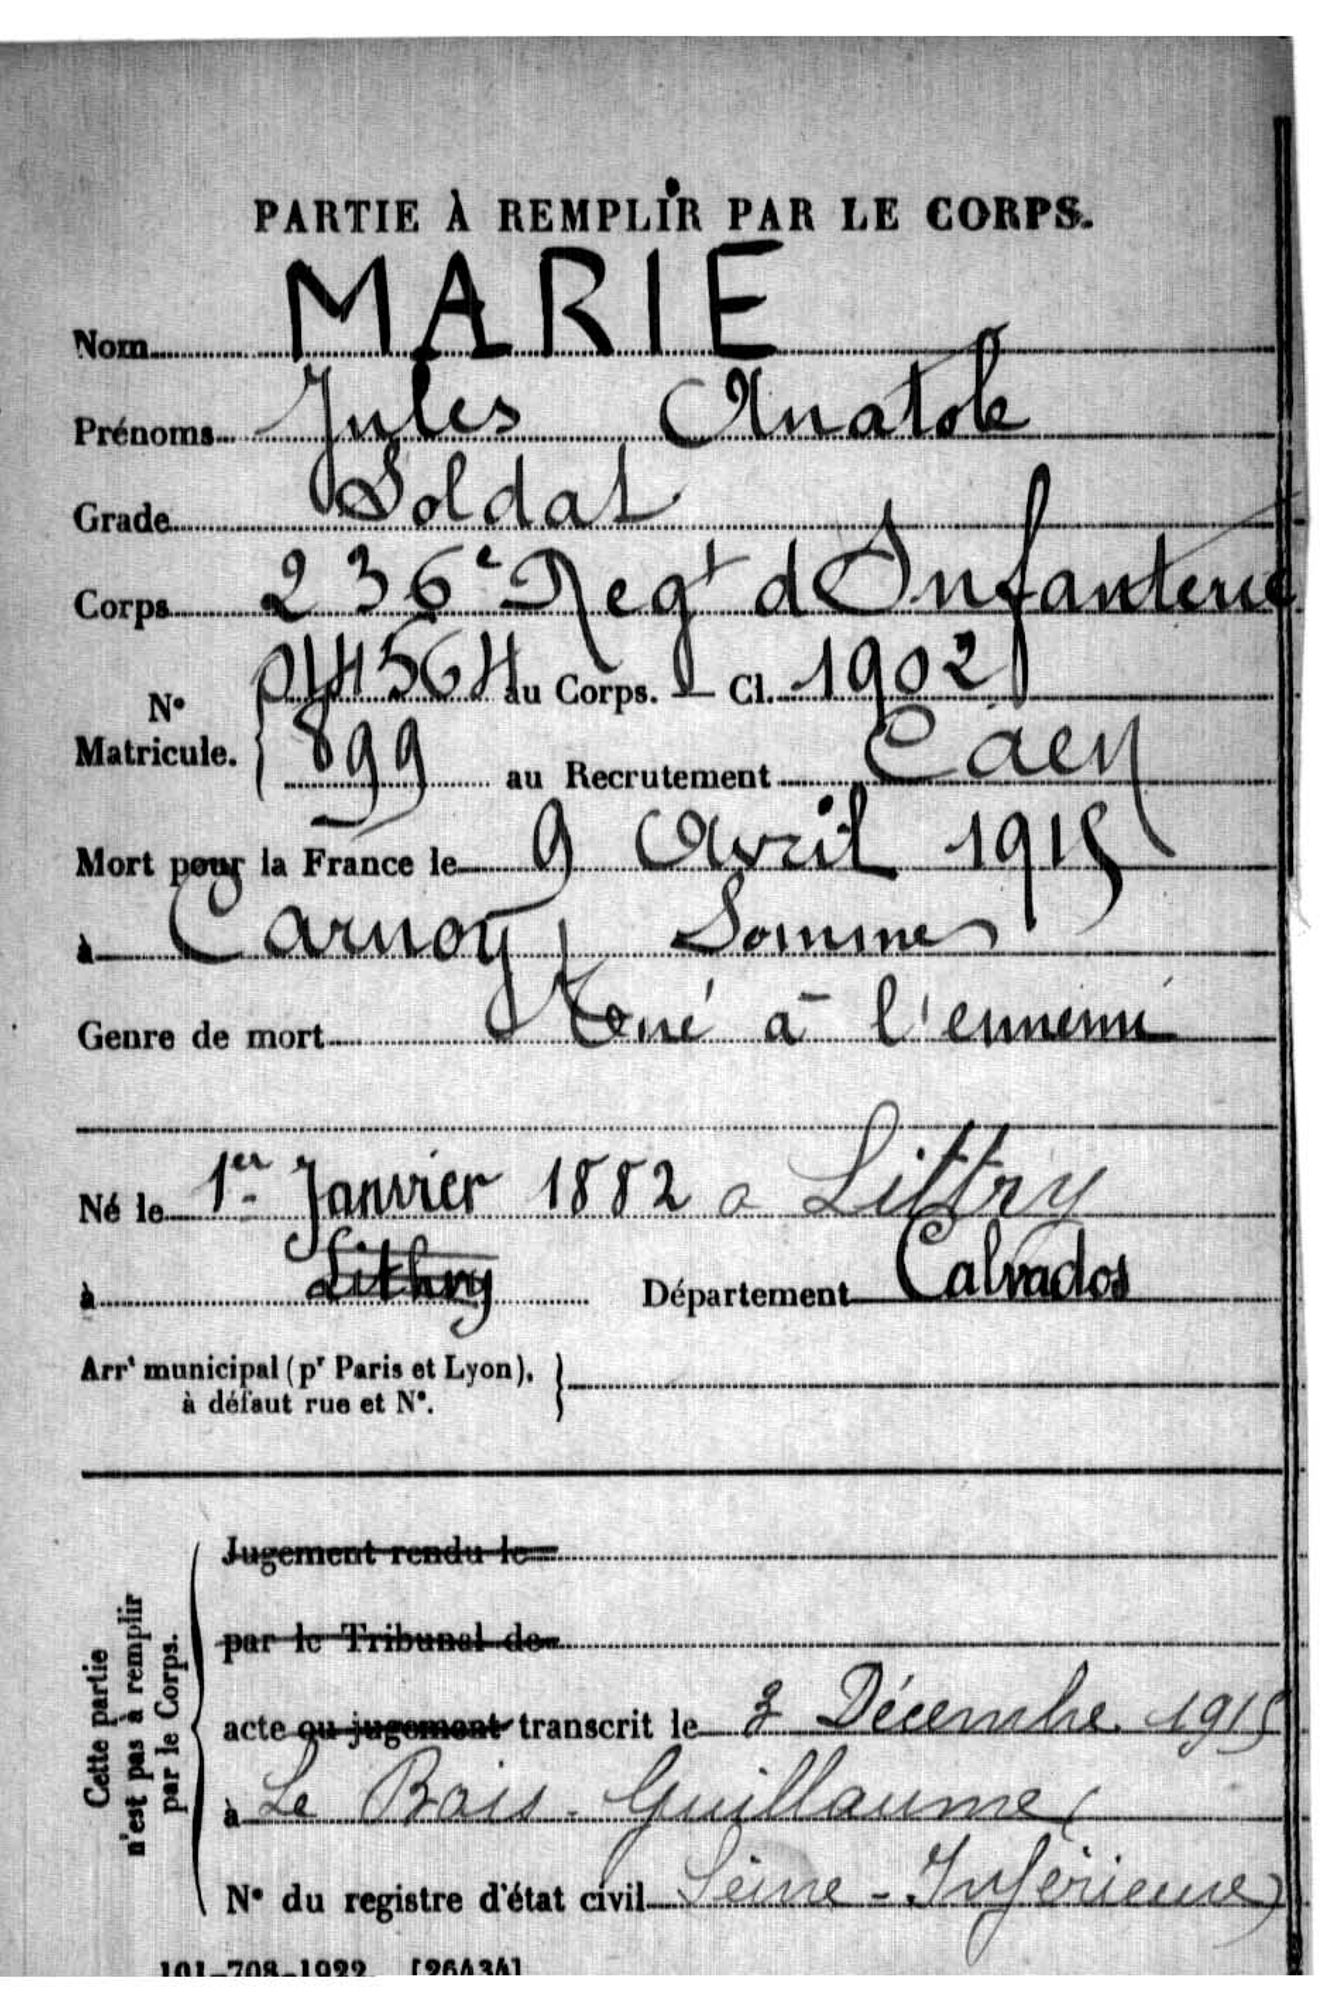 PARTIE À REMPLIR PAR LE CORPS.
Nom MARIE
Prénoms Jules Anatole
Grade Soldat
Corps 236e Regt d Infanterie
N° Matricule. 014564 au Corps. — Cl. 1902
899 au Recrutement Caen
Mort pour la France le 9 Avril 1915
à Carnoy Somme
Genre de mort tué à l'ennemi
Né le 1er Janvier 1882 a Littry
à Litthry Département Calvados
Arrt municipal (pr Paris et Lyon),
à défaut rue et N°.
Cette partie
n'est pas à remplir
par le Corps.
Jugement rendu le
par le Tribunal de
acte ou jugement transcrit le 3 Décembre 1915
à Le Bois-Guillaume (
N° du registre d'état civil Seine-Inférieure)
101-708-1922. [26434]